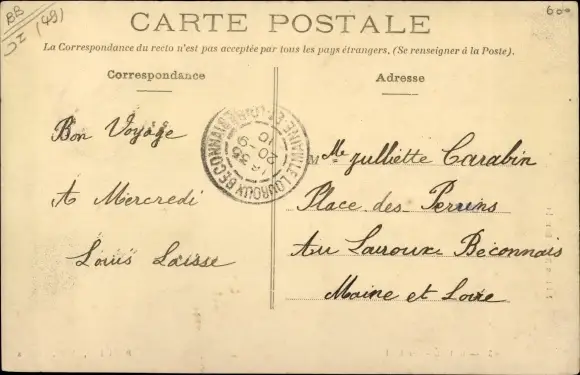 BB
JZ (49)
600
CARTE POSTALE
La Correspondance du recto n'est pas acceptée par tous les pays étrangers. (Se renseigner à la Poste).
Correspondance
Bon Voyage
A Mercredi
Louis Laisse
LE LOUROUX-BECONNAIS
MAINE-ET-LOIRE
20-9
10
Adresse
Mlle Julliette Carabin
Place des
Au Louroux Béconnais
Maine et Loire